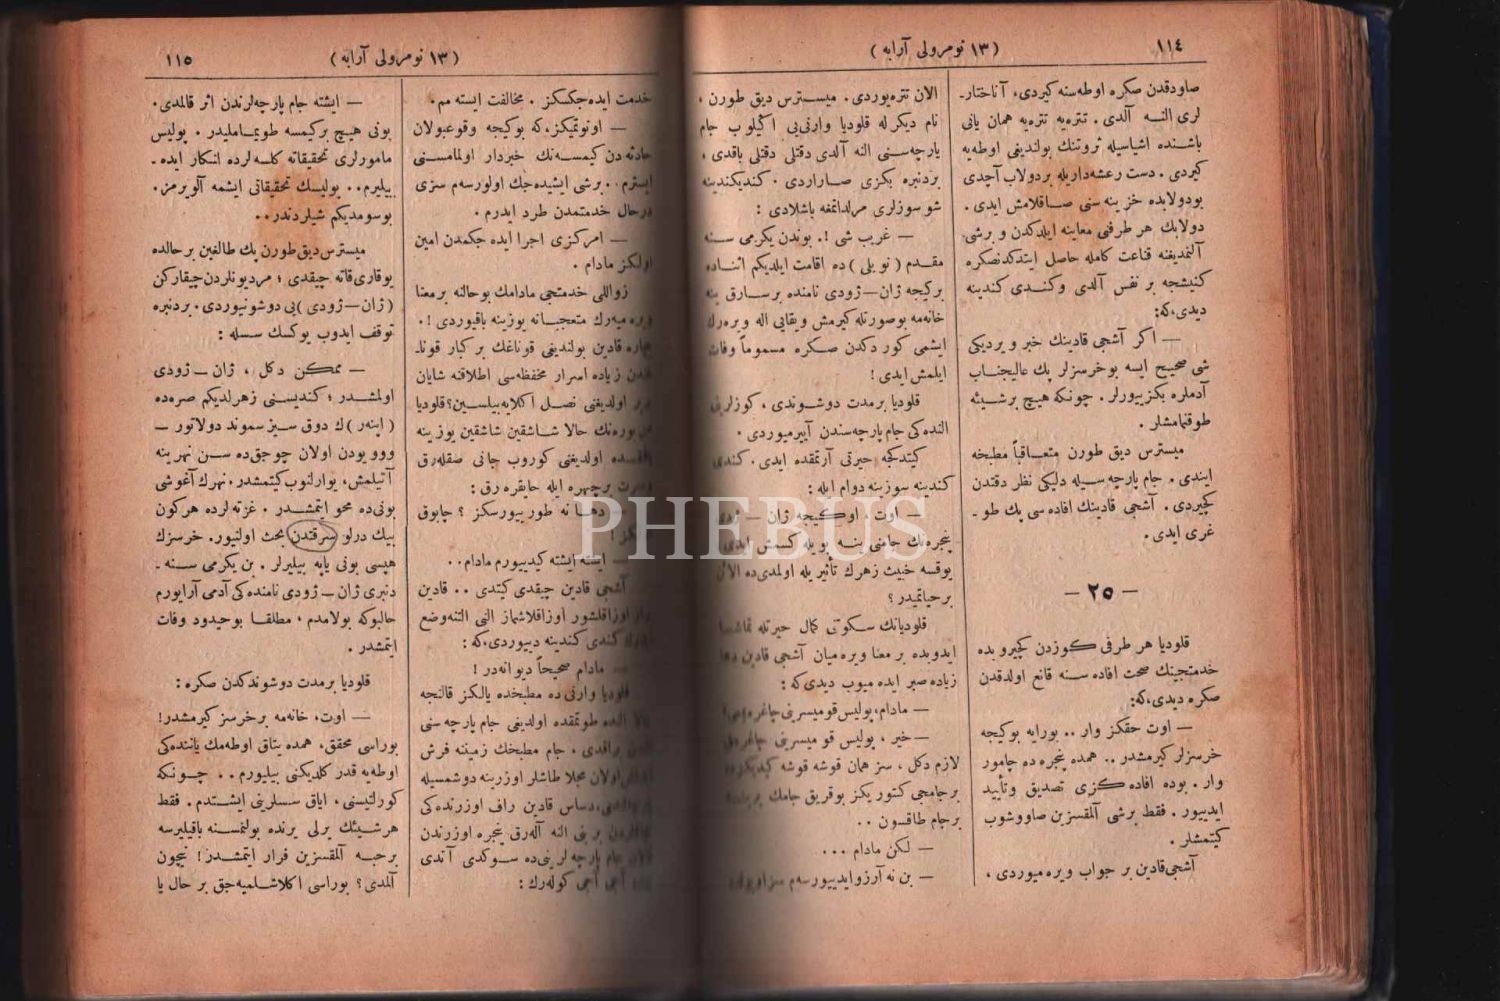 ١١٤
( ١٣ نومرولی آرابه )
صاودقدن صکره اوطه‌سنه کیردی، آناختار-
لری النه آلدی . تتره‌یه تتره‌یه همان یانی
باشنده اشیاسیله ثروتنك بولندیغی اوطه‌یه
کیردی . دست رعشه‌داریله بردولاب آچدی
بودولابده خزینه‌سنی صاقلامش ایدی .
دولابك هر طرفنی معاینه ایلدکدن و برشی
آلنمدیغنه قناعت کامله حاصل ایتدکدنصکره
کنیشجه بر نفس آلدی وکندی کندینه
دیدی،که:
— اکر آشجی قادینك خبر ویردیکی
شی صحیح ایسه بوخرسزلر پك عالیجناب
آدملره بکزیبورلر . چونکه هیچ برشیئه
طوقنمامشلر .
میسترس دیق طورن متعاقباً مطبخه
ایندی . جام پارچه‌سیله دلیکی نظر دقتدن
کچیردی . آشجی قادینك افاده سی پك طو-
غری ایدی .
— ٢٥ —
قلودیا هر طرفی کوزدن کچیروبده
خدمتجینك صحت افاده سنه قانع اولدقدن
صکره دیدی،که:
— اوت حقکز وار .. بورایه بوکیجه
خرسزلر کیرمشدر .. همده پنجره ده چامور
وار . بوده افاده کزی تصدیق وتأیید
ایدییور . فقط برشی آلمقسزین صاووشوب
کیتمشلر .
آشجی‌قادین بر جواب ویره‌میوردی ،
الان تتره‌یوردی. میسترس دیق طورن ،
نام دیکرله قلودیا وارنی‌یی اکیلوب جام
پارچه‌سنی النه آلدی دقتلی دقتلی باقدی ،
بردنبره بکزی صاراردی . کندیکندینه
شو سوزلری مرلدانمغه باشلادی :
— غریب شی !. بوندن یکرمی سنه
مقدم ( نویلی ) ده اقامت ایلدیکم اثناده
برکیجه ژان—ژودی نامنده برسارق ینه
خانه‌مه بوصورتله کیرمش ویقایی اله ویره‌رك
ایشمی کوردکدن صکره مسموماً وفات
ایلمش ایدی !
قلودیا برمدت دوشوندی ، کوزلرینی
النده‌کی جام پارچه‌سندن آییرمیوردی .
کیتدکجه حیرتی آرتمقده ایدی. کندی
کندینه سوزینه دوام ایله :
— اوت ، اوکیجه ژان — ژودی
پنجره‌نك جامنی ینه بویله کسمش ایدی
یوقسه خبیث زهرك تأثیریله اولمدی‌ده الان
برحیاتمیدر ؟
قلودیانك سکوتی کمال حیرتله تماشا
ایدوبده بر معنا ویره‌میان آشجی قادین دها
زیاده صبر ایده میوب دیدی‌که :
— مادام، پولیس قومیسرینی چاغره‌یم‌می!
— خیر ، پولیس قومیسرینی چاغرمق
لازم دکل ، سز همان قوشه قوشه کیدیکز ده
برجامجی کتوریکز بوقریق جامك یرینه
برجام طاقسون ..
— لکن مادام ...
— بن نه آرزو ایدییورسه‌م سز اویولده
١١٥
( ١٣ نومرولی آرابه )
خدمت ایده‌جکسکز . مخالفت ایسته مم.
— اونوتمیکز،که بوکیجه وقوعبولان
حادثه دن کیمسه‌نك خبردار اولمامسنی
ایسترم.. برشی ایشیده‌جك اولورسه‌م سزی
درحال خدمتمدن طرد ایدرم .
— امرکزی اجرا ایده جکمدن امین
اولکز مادام .
زواللی خدمتجی مادامك بوحالنه برمعنا
ویره میه‌رك متعجبانه یوزینه باقیوردی !.
بیچاره قادین بولندیغی قوناغك برکبار قونا-
غندن زیاده اسرار محفظه‌سی اطلاقنه شایان
بر یر اولدیغنی نصل اکلایه‌بیلسین؟قلودیا
حالا شاشقین شاشقین یوزینه
باقمقده اولدیغنی کوروب جانی صقله‌رق
برچهره ایله حایقره‌رق :
— دها نه طور ییورسکز ؟ چابوق
— ایشته ایشته کیدییورم مادام..
آشجی قادین چیقدی کیتدی .. قادین
اوزاقلشور اوزاقلاشماز النی آلننه‌وضع
کندی کندینه دییوردی،که :
— مادام صحیحاً دیوانه‌در !
قلودیا وارنی ده مطبخده یالکز قالنجه
حالا النده طوتمقده اولدیغی جام پارچه سنی
براقدی . جام مطبخك زمیننه فرش
اولان مجلا طاشلر اوزرینه دوشمسیله
دساس قادین راف اوزرنده‌کی
برینی النه آله‌رق پنجره اوزرندن
جام پارچه‌لرینی‌ده سوکدی آتدی
آجی آجی کوله‌رك :
— ایشته جام پارچه‌لرندن اثر قالمدی.
بونی هیچ برکیمسه طویمامالیدر . پولیس
مأمورلری تحقیقاته کلسه لرده انکار ایده-
بیلیرم.. پولیسك تحقیقاتی ایشمه آلویرمز.
بوسومدیکم شیلردندر..
میسترس‌دیق‌طورن پك طالغین برحالده
یوقاری‌قاته چیقدی ؛ مردیونلردن‌چیقارکن
(ژان—ژودی)یی دوشونیوردی. بردنبره
توقف ایدوب یوکسك سسله :
— ممکن دکل ، ژان—ژودی
اولمشدر ؛ کندیسنی زهرلدیکم صره‌ده
( اینه‌ر )ك دوق سیزسموند دولاتور —
وودیودن اولان چوجق‌ده سن نهرینه
آتیلمش، یوارلنوب کیتمشدر. نهرك آغوشی
بونی‌ده محو ایتمشدر . غزته‌لرده هرکون
بیك درلو سرقتدن بحث اولنیور. خرسزك
هپسی بونی یاپه بیلیرلر . بن یکرمی سنه-
دنبری ژان—ژودی نامنده‌کی آدمی آرایورم
حالبوکه بولامدم ، مطلقا بوحیدود وفات
ایتمشدر .
قلودیا برمدت دوشوندکدن صکره :
— اوت، خانه‌مه برخرسز کیرمشدر!
بوراسی محقق، همده یتاق اوطه‌مك یاننده‌کی
اوطه‌یه قدر کلدیکنی بیلیورم.. چونکه
کورلتیسنی ، ایاق سسلرینی ایشتدم . فقط
هرشیئك یرلی یرنده بولنمسنه باقیلیرسه
برحبه آلمقسزین فرار ایتمشدر! نیچون
آلمدی؟ بوراسی اکلاشلمیه‌جق بر حال یا
PHEBUS